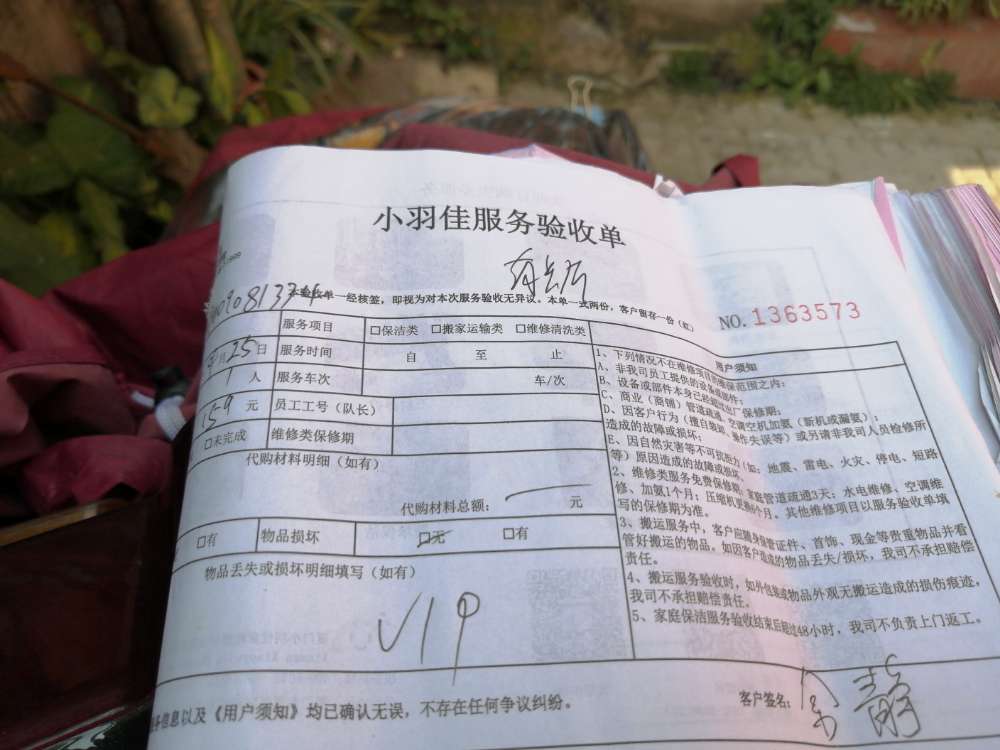 小羽佳服务验收单
本验收单一经核签，即视为对本次服务验收无异议。本单一式两份，客户留存一份（红）
NO. 1363573
服务项目 □保洁类 □搬家运输类 □维修清洗类
25日 服务时间 自 至 止
1 人 服务车次 车/次
159 元 员工工号（队长）
□未完成 维修类保修期
代购材料明细（如有）
代购材料总额： 元
□有 物品损坏 □无 □有
物品丢失或损坏明细填写（如有）
VIP
用户须知
1、下列情况不在维修项目的维保范围之内：
A、非我司员工提供的设备或部件；
B、设备或部件本身已经超过出厂保修期；
C、商业（商铺）管道疏通、空调空机加氨（新机或漏氨）；
D、因客户行为（擅自装卸、操作失误等）或另请非我司人员检修所
造成的故障或损坏；
E、因自然灾害等不可抗拒力（如：地震、雷电、火灾、停电、短路
等）原因造成的故障或损坏。
2、维修类服务免费保修期：家庭管道疏通3天；水电维修、空调维
修、加氨1个月；压缩机更换6个月。其他维修项目以服务验收单填
写的保修期为准。
3、搬运服务中，客户应随身保管证件、首饰、现金等贵重物品并看
管好搬运的物品。如因客户造成的物品丢失/损坏，我司不承担赔偿
责任。
4、搬运服务验收时，如外包装或物品外观无搬运造成的损伤痕迹，
我司不承担赔偿责任。
5、家庭保洁服务验收结束后超过48小时，我司不负责上门返工。
务信息以及《用户须知》均已确认无误，不存在任何争议纠纷。
客户签名：